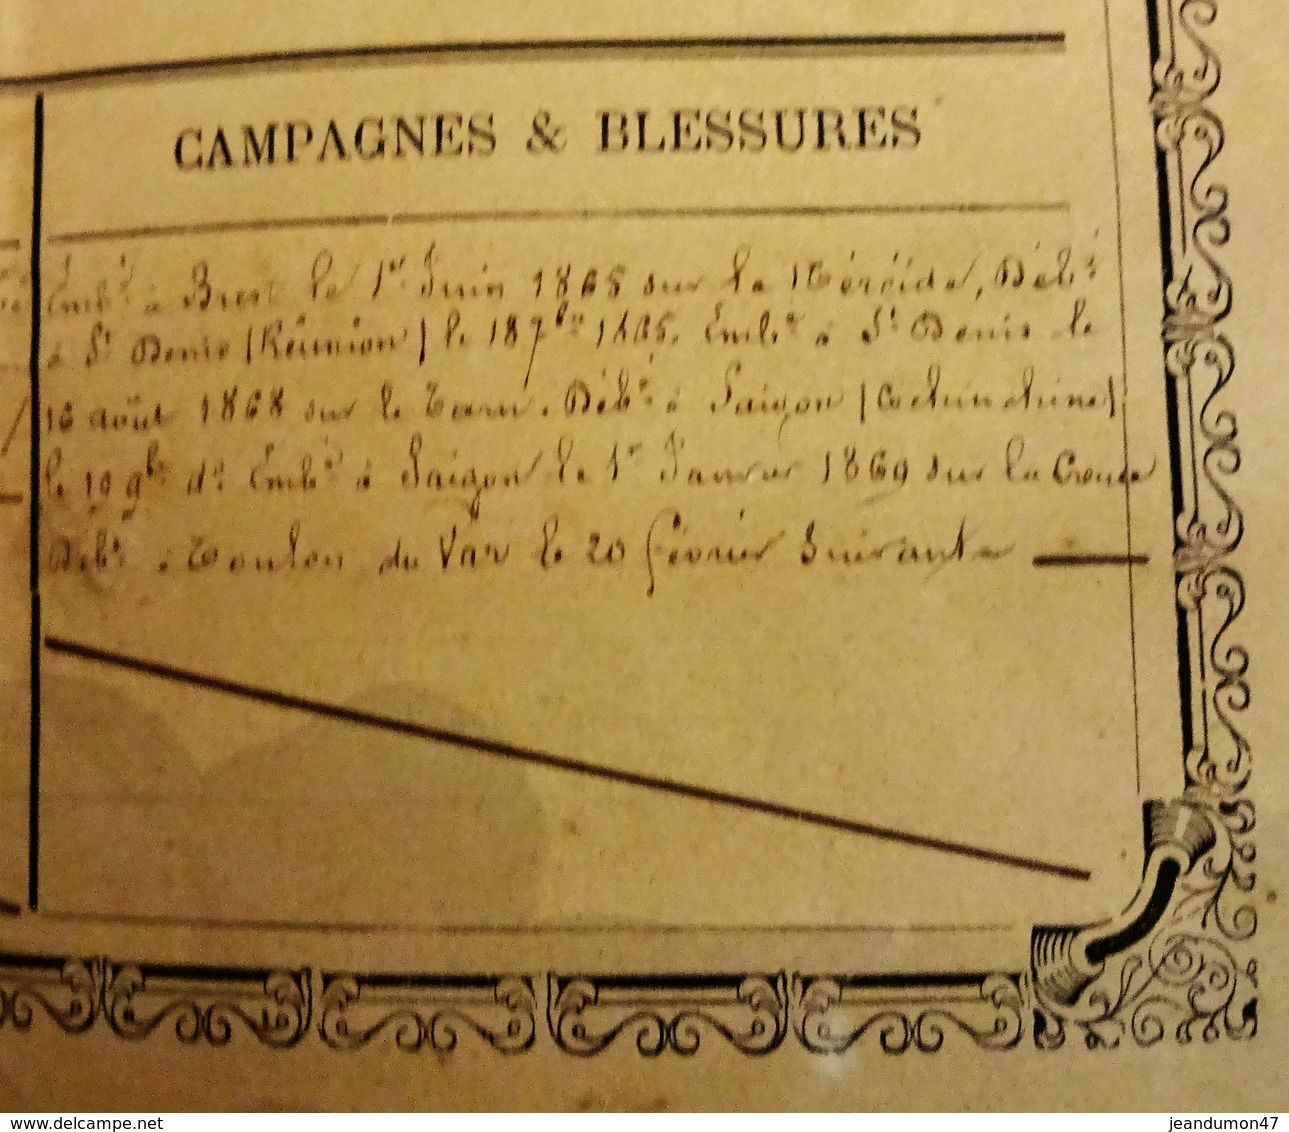 CAMPAGNES & BLESSURES
Emb.é à Brest le 1er Juin 1865 sur la Néréide, Déb.é
à St Denis (Réunion) le 18 7bre 1865. Emb.é à St Denis le
16 août 1868 sur le Tarn. Déb.é à Saigon (Cochinchine)
le 19 9bre d° Emb.é à Saigon le 1er Janvier 1869 sur la Creuse
Déb.é à Toulon du Var le 20 février Suivant
www.delcampe.net
jeandumon47